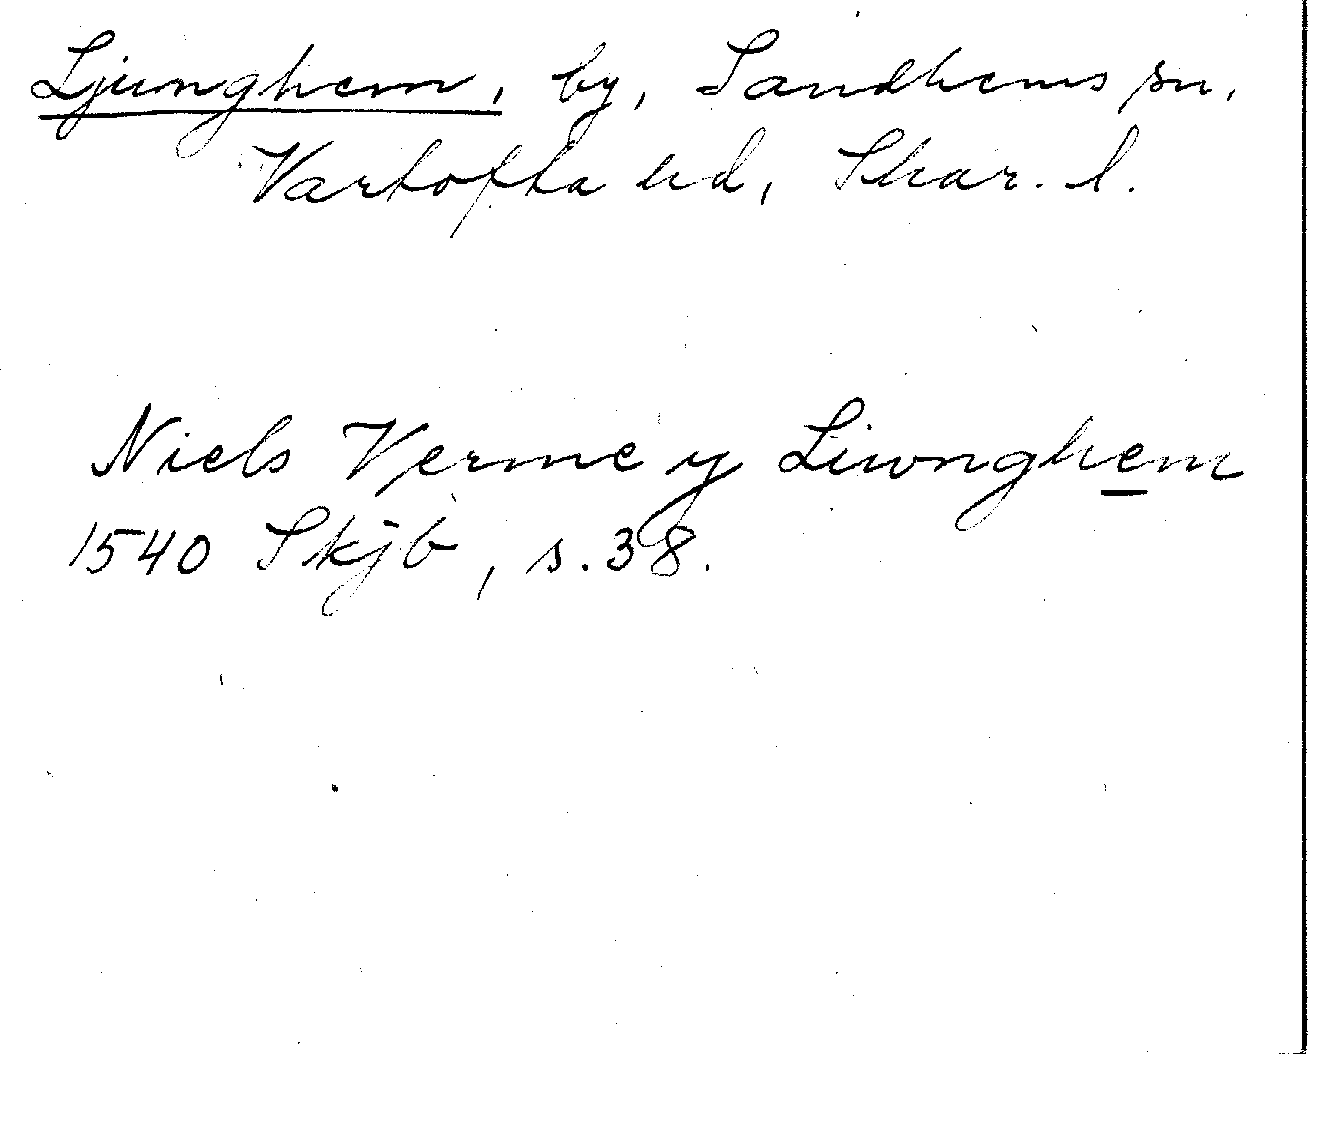 Ljunghem, by, Sandhems sn,
Vartofta hd, Skar. l.
Niels Verme y Liwnghem
1540 Skjb, s. 38.